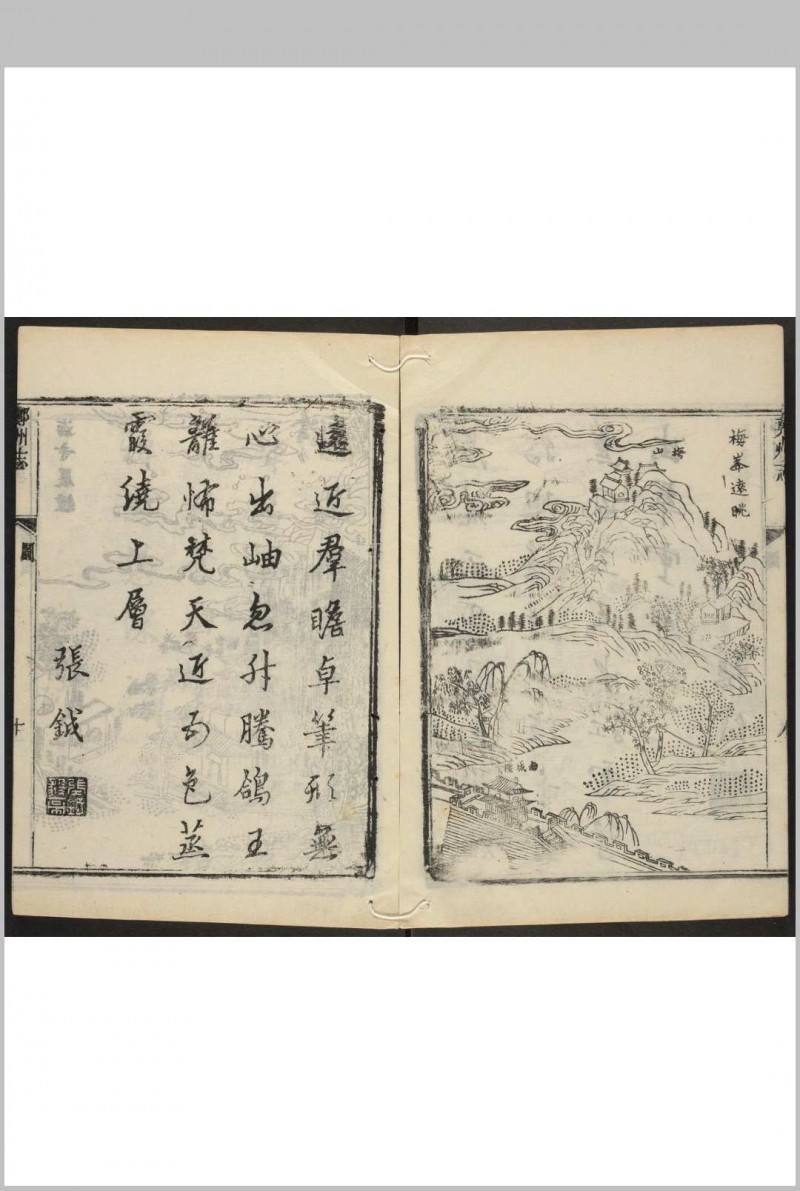 梅峯遠眺
梅山
遠近羣瞻卓筆形無
心出岫忽升騰鴿王
離怖梵天近五色蒸
霞繞上層
張鉞
鄭州志
圖
十